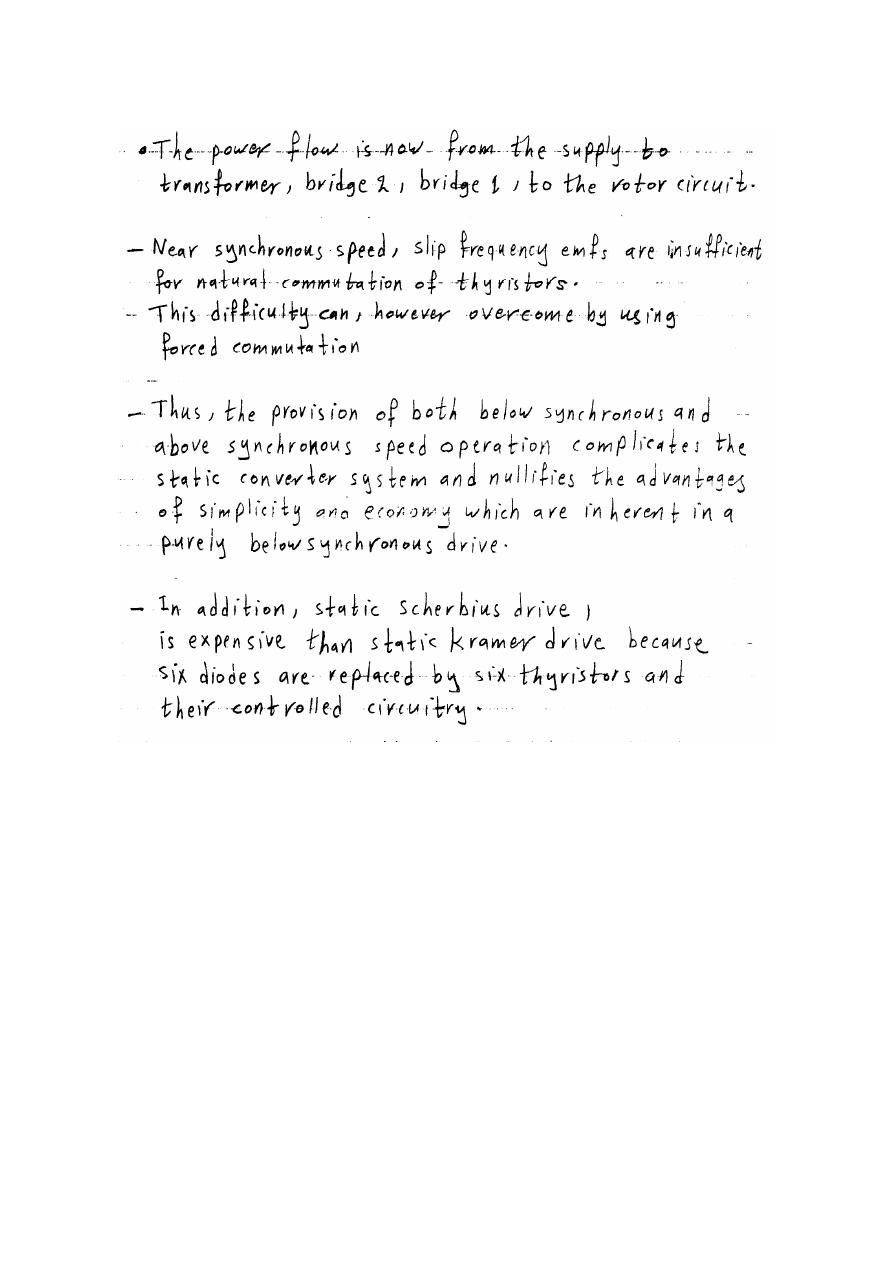 • The power flow is now from the supply to
transformer, bridge 2, bridge 1, to the rotor circuit.
- Near synchronous speed, slip frequency emfs are insufficient
for natural commutation of thyristors.
- This difficulty can, however overcome by using
forced commutation
- Thus, the provision of both below synchronous and
above synchronous speed operation complicates the
static converter system and nullifies the advantages
of simplicity and economy which are inherent in a
purely below synchronous drive.
- In addition, static Scherbius drive,
is expensive than static kramer drive because
six diodes are replaced by six thyristors and
their controlled circuitry.